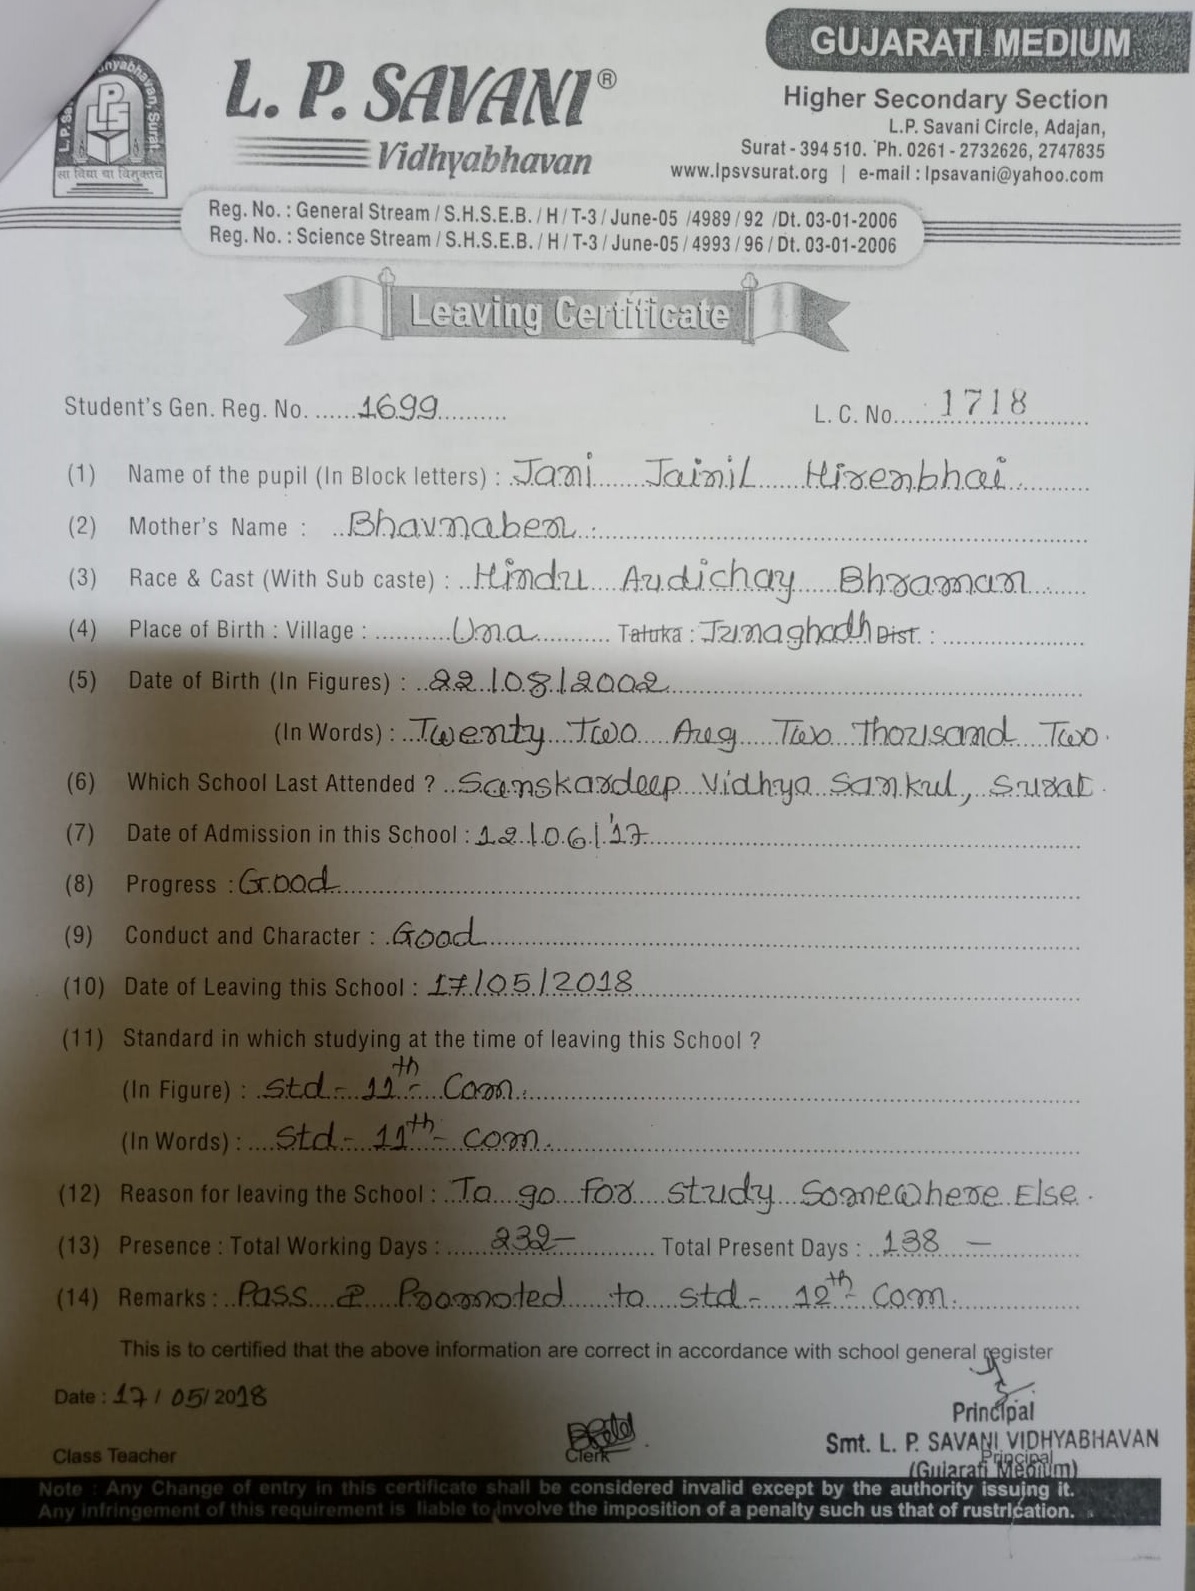 GUJARATI MEDIUM
L. P. SAVANI®
Vidhyabhavan
Higher Secondary Section
L.P. Savani Circle, Adajan,
Surat - 394 510. Ph. 0261 - 2732626, 2747835
www.lpsvsurat.org | e-mail : lpsavani@yahoo.com
LPS
सा विद्या या विमुक्तये
Reg. No. : General Stream / S.H.S.E.B. / H / T-3 / June-05 /4989 / 92 /Dt. 03-01-2006
Reg. No. : Science Stream / S.H.S.E.B. / H / T-3 / June-05 / 4993 / 96 / Dt. 03-01-2006
Leaving Certificate
Student's Gen. Reg. No. ......1699.......... L. C. No..... 1718
(1) Name of the pupil (In Block letters) : Jani Jainil Hirenbhai
(2) Mother's Name : Bhavnaben
(3) Race & Cast (With Sub caste) : Hindu Audichay Bhraman
(4) Place of Birth : Village : Una Taluka : Junaghadh Dist. :
(5) Date of Birth (In Figures) : 22/08/2002
(In Words) : Twenty Two Aug Two Thousand Two.
(6) Which School Last Attended ? Sanskardeep Vidhya Sankul, Surat.
(7) Date of Admission in this School : 12/06/'17
(8) Progress : Good
(9) Conduct and Character : Good
(10) Date of Leaving this School : 17/05/2018
(11) Standard in which studying at the time of leaving this School ?
(In Figure) : Std - 11th - Com.
(In Words) : Std - 11th - com.
(12) Reason for leaving the School : To go for study Somewhere Else.
(13) Presence : Total Working Days : 232- Total Present Days : 138 -
(14) Remarks : Pass & Promoted to std - 12th - Com.
This is to certified that the above information are correct in accordance with school general register
Date : 17 / 05 / 2018
Principal
Class Teacher Clerk Smt. L. P. SAVANI VIDHYABHAVAN
Principal
(Gujarati Medium)
Note : Any Change of entry in this certificate shall be considered invalid except by the authority issuing it.
Any infringement of this requirement is liable to involve the imposition of a penalty such us that of rustrication.